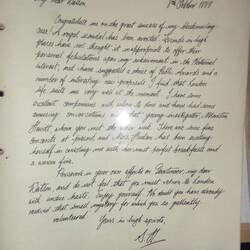 My dear Watson,
7th October 1888
Congratulate me on the great success of my blackmailing
case! A royal scandal has been averted. Friends in high
places have not thought it inappropriate to offer their
personal felicitations upon my achievement in the National
interest, and have suggested a choice of Public Awards and a
number of interesting new proposals. I find that London
life suits me very well at the moment. I have some
excellent companions with whom to dine and have had some
amusing conversations with that young investigator, Monsieur
whom you met the other week. There are some fine
concerts at present and Mrs Hudson has been excelling
herself in sending me up her most perfect breakfasts and
a winter fire.
Persevere in your own efforts on Dartmoor, my dear
Watson, and do not feel that you must return to London
with undue haste. Enjoy yourself! No doubt you have already
solved that small mystery for which you so gallantly
volunteered.
Yours in high spirits,
S.H.